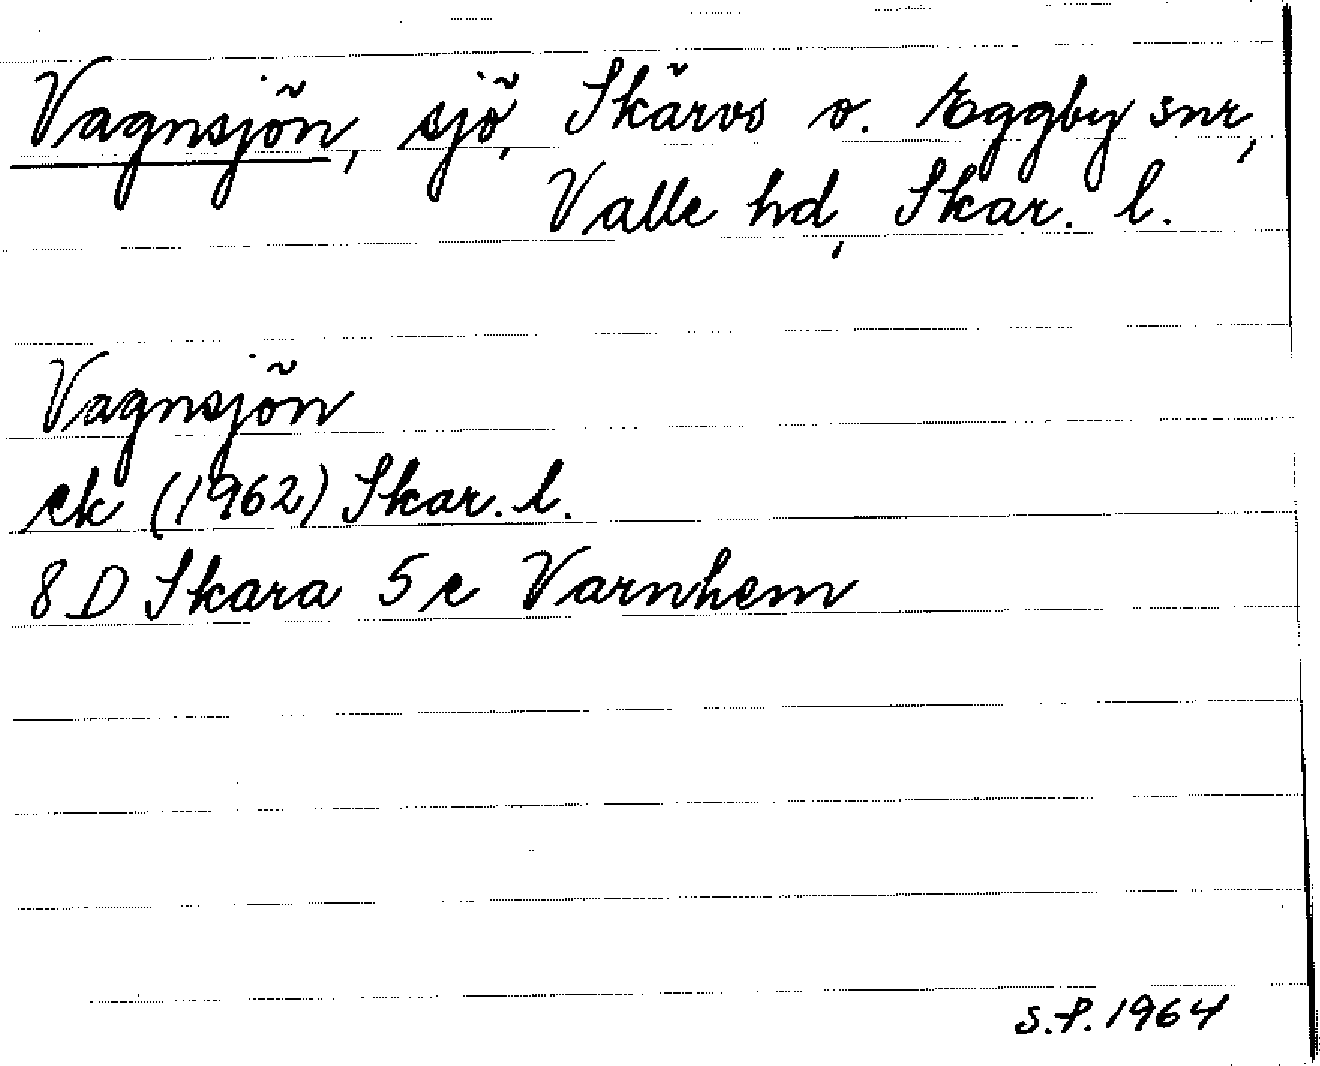 Vagnsjön, sjö, Skärvs o. Eggby snr,
Valle hd, Skar. l.
Vagnsjön
ek (1962) Skar. l.
8 D Skara 5 e Varnhem
S.P. 1964